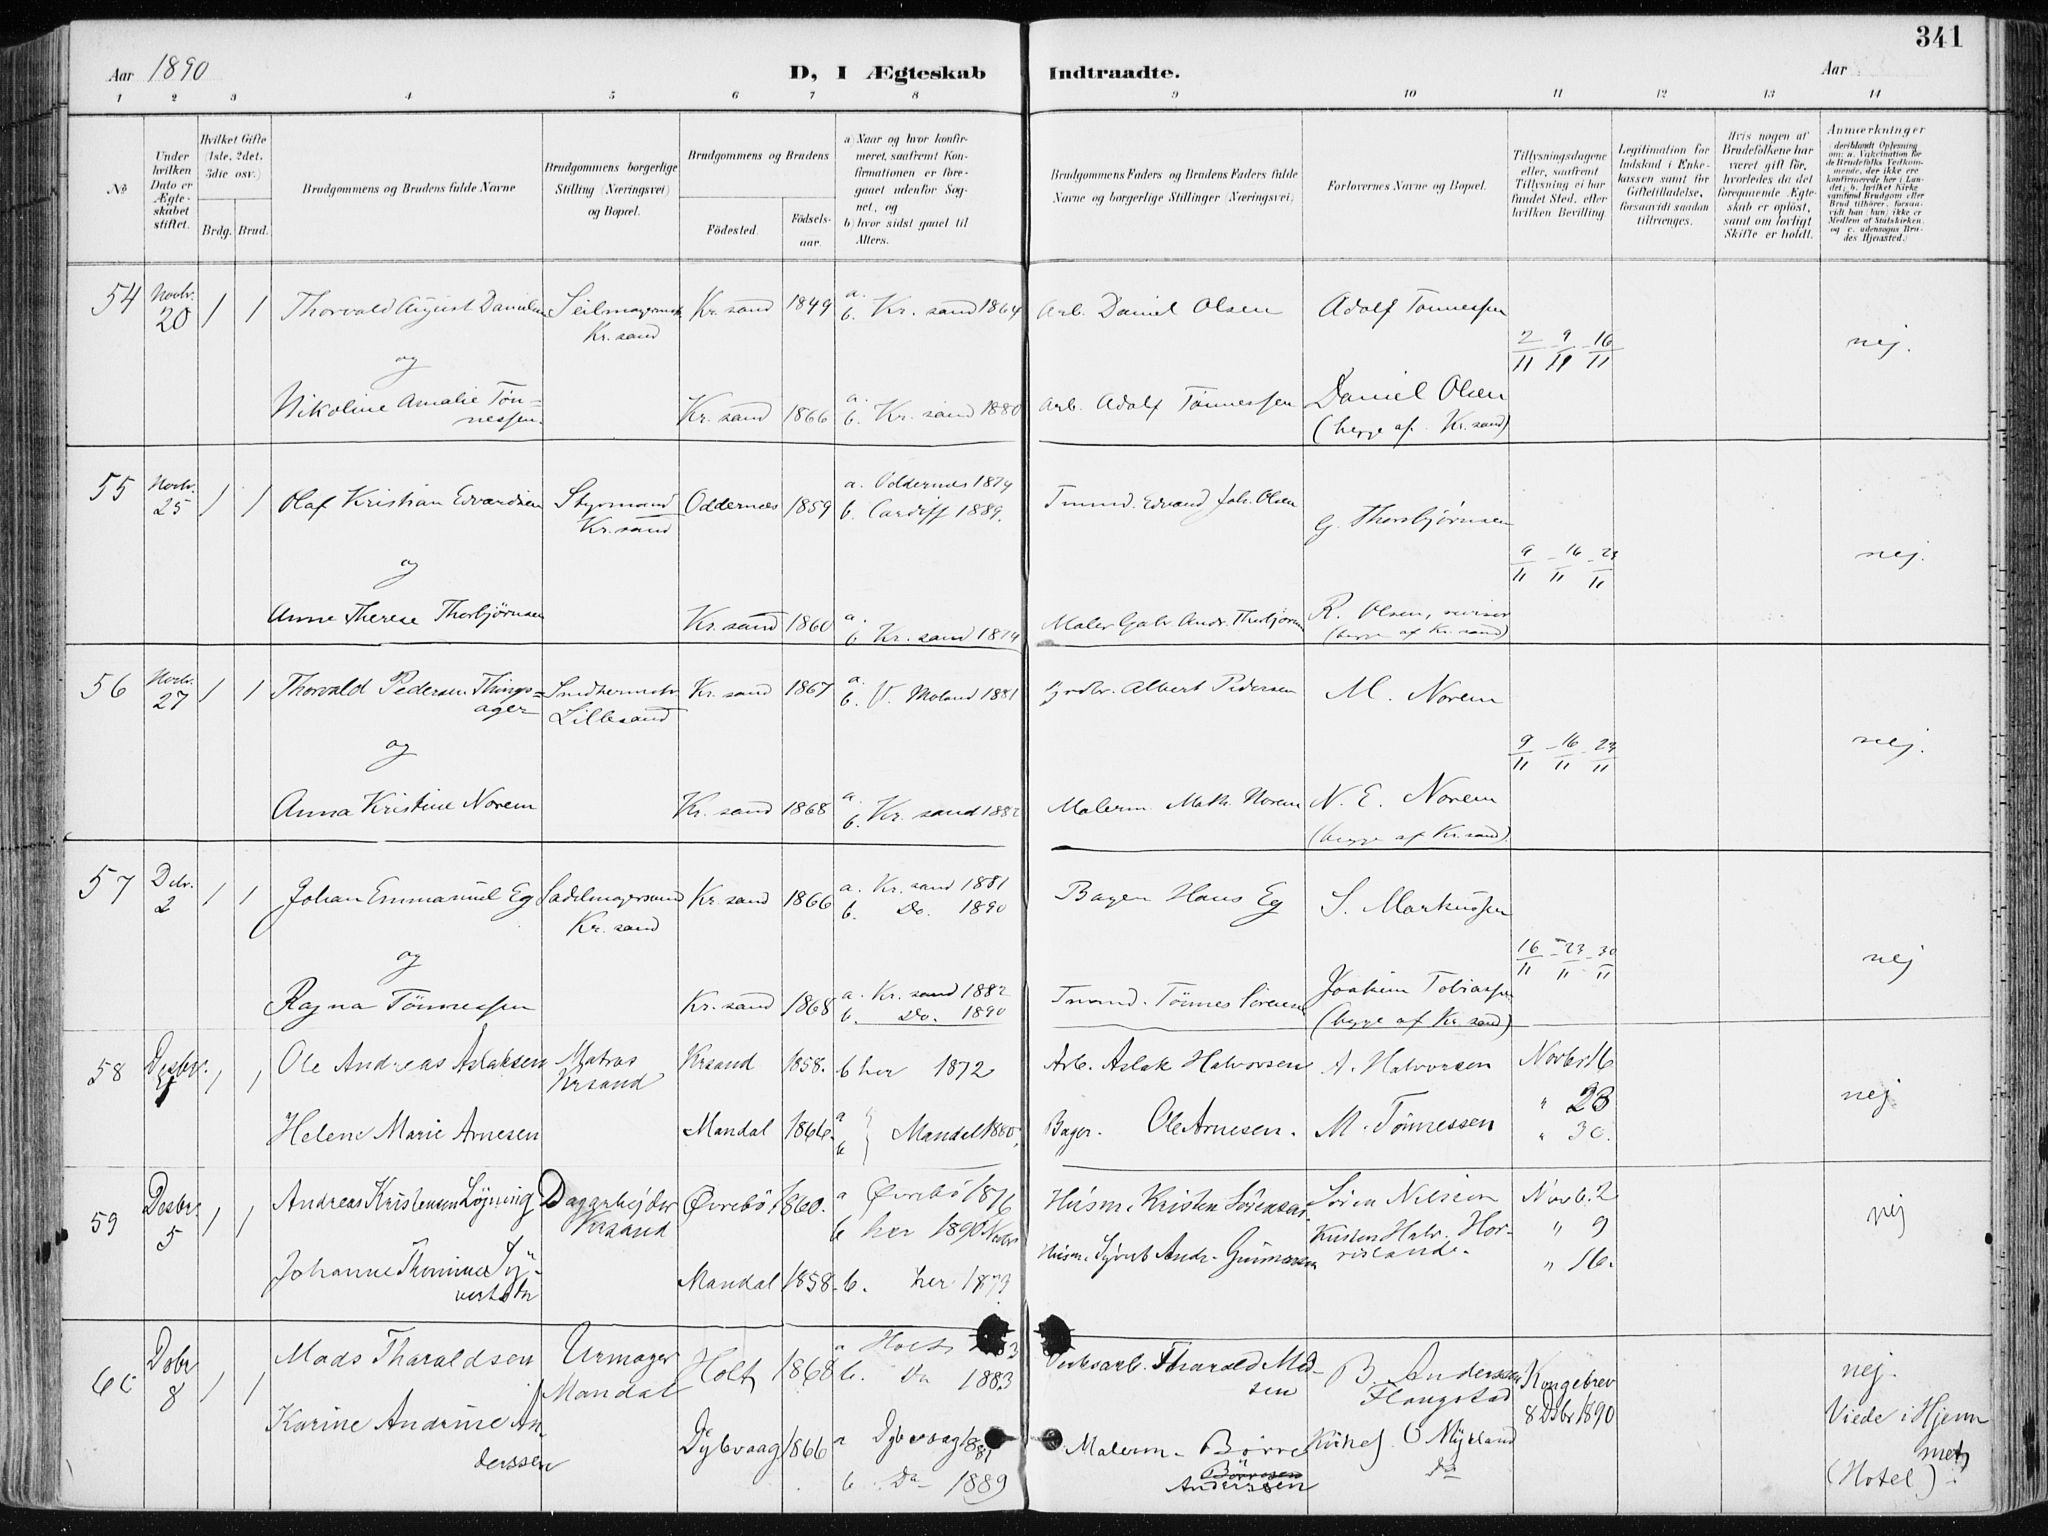 341
Aar 1890
D, I Ægteskab Indtraadte.
Aar
1 2 3 4 5 6 7 8 9 10 11 12 13 14
No
Under hvilken Dato er Ægteskabet stiftet.
Hvilket Gifte (1ste, 2det, 3die osv.)
Brdg. Brud.
Brudgommens og Brudens fulde Navne
Brudgommens borgerlige Stilling (Næringsvei) og Bopæl.
Brudgommens og Brudens
Födested.
Födsels-aar.
a) Naar og hvor konfirmeret, saafremt Konfirmationen er foregaaet udenfor Sognet, og
b) hvor sidst gaaet til Alters.
Brudgommens Faders og Brudens Faders fulde Navne og borgerlige Stillinger (Næringsvei)
Forlovernes Navne og Bopæl.
Tillysningsdagene eller, saafremt Tillysning ei har fundet Sted, efter hvilken Bevilling.
Legitimation for Indskud i Enkekassen samt for Giftetilladelse, forsaavidt saadan tiltrænges.
Hvis nogen af Brudefolkene har været gift för, hvorledes da det foregaaende Ægteskab er oplöst, samt om lovligt Skifte er holdt.
Anmærkninger (deriblandt Oplysning om: a. Vakcination for de Brudefolks Vedkommende, der ikke ere konfirmerede her i Landet; b. hvilket Kirkesamfund Brudgom eller Brud tilhører, forsaavidt han (hun) ikke er Medlem af Statskirken, og c. udensogns Brudes Hjemsted.)
54 Novbr. 20 1 1 Thorvald August Danielsen Seilmagersvend Kr. sand Kr. sand 1849 a. b. Kr. sand 1864 Arb. Daniel Olsen Adolf Tønnessen 2/11 - 9/11 - 16/11 nej.
og
Nikoline Amalie Tönnessen. Kr. sand 1866 a. b. Kr. sand 1880 Arb. Adolf Tönnessen Daniel Olsen
(begge af Kr. sand)
55 Novbr. 25 1 1 Olaf Kristian Edvardsen Styrmand Kr. sand Oddernes 1859 a. Oddernes 1874 b. Cardiff 1889. Tmmd. Edvard Joh. Olsen G. Thorbjørnsen 9/11 - 16/11 - 23/11 nej.
og
Anne Therese Thorbjørnsen Kr. sand 1860 a. b. Kr. sand 1874 Maler Gabr. Andr. Thorbjørnsen R. Olsen, revisor
(begge af Kr. sand)
56 Novbr. 27 1 1 Thorvald Pedersen Thingsager Lillesand Kr. sand 1867 a. b. V. Moland 1881 Albert Pedersen M. Norem 9/11 - 16/11 - 23/11 nej.
og
Anna Kristine Norem Kr. sand 1868 a. b. Kr. sand 1882 Malerm. Math. Norem N. E. Norem
(begge af Kr. sand)
57 Debr. 2 1 1 Johan Emmanuel Eg Sadelmagersvend Kr. sand Kr. sand 1866 a. Kr. sand 1881 b. Do. 1890 Bager Hans Eg S. Markussen 16/11 - 23/11 - 30/11 nej
og
Ragna Tönnessen Kr. sand 1868 a. Kr. sand 1882 b. Do. 1890 Tmmd. Tönnes Sörensen Joakim Tobiassen
(begge af Kr. sand)
58 Desbr. 1 1 Ole Andreas Aslaksen Matros Krsand Krsand 1858. b her 1872 Arb. Aslak Halvorsen A. Halvorsen Novbr. 16 nej
" 23
Helene Marie Arnesen Mandal 1866. a b } Mandal 1880. Bager. Ole Arnesen. M. Tönnessen " 30.
59 Desbr. 5 1 1 Andreas Kristensen Løjning Dagarbejder Krsand Øvrebö 1860. a Øvrebö 1876 b her 1890 Novbr Husm. Kristen Sörensen. Sören Nilsen Novb. 2 nej
Kristen Halv. Horrislande. " 9
Johanne Thomine Syvertsdtr Mandal 1858. b. her 1873 Husm. Syvert Andr. Gunnarsen " 16.
60 Debr 8 1 1 Mads Tharaldsen Urmager Mandal Holt 1868 a Holt b. Do 1883 Verksarb. Tharald Madsen B. Anderssen Flangstad Kongebrev 8 Dsbr 1890 nej.
Karine Andrine Anderssen Dybvaag 1866 a Dybvaag 1881 b. Do 1889 Malerm. Børre Børresen Anderssen O Mykland Do
Viede i Hjemmet
(Hotel)